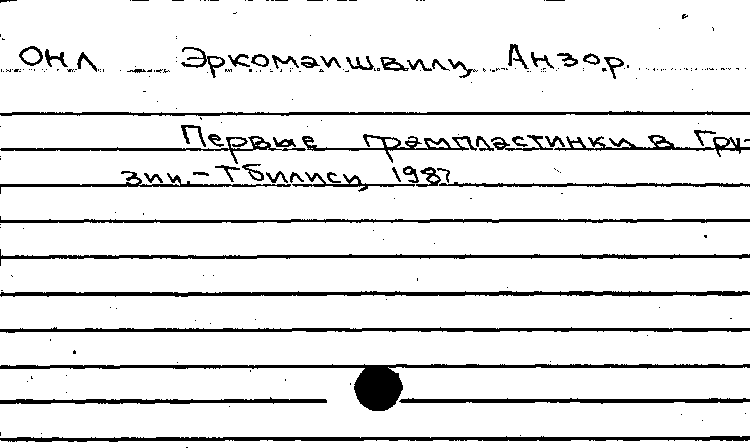 ОНЛ Эркомаишвили, Анзор.
Первые грампластинки в Гру-
зии.- Тбилиси, 1987.